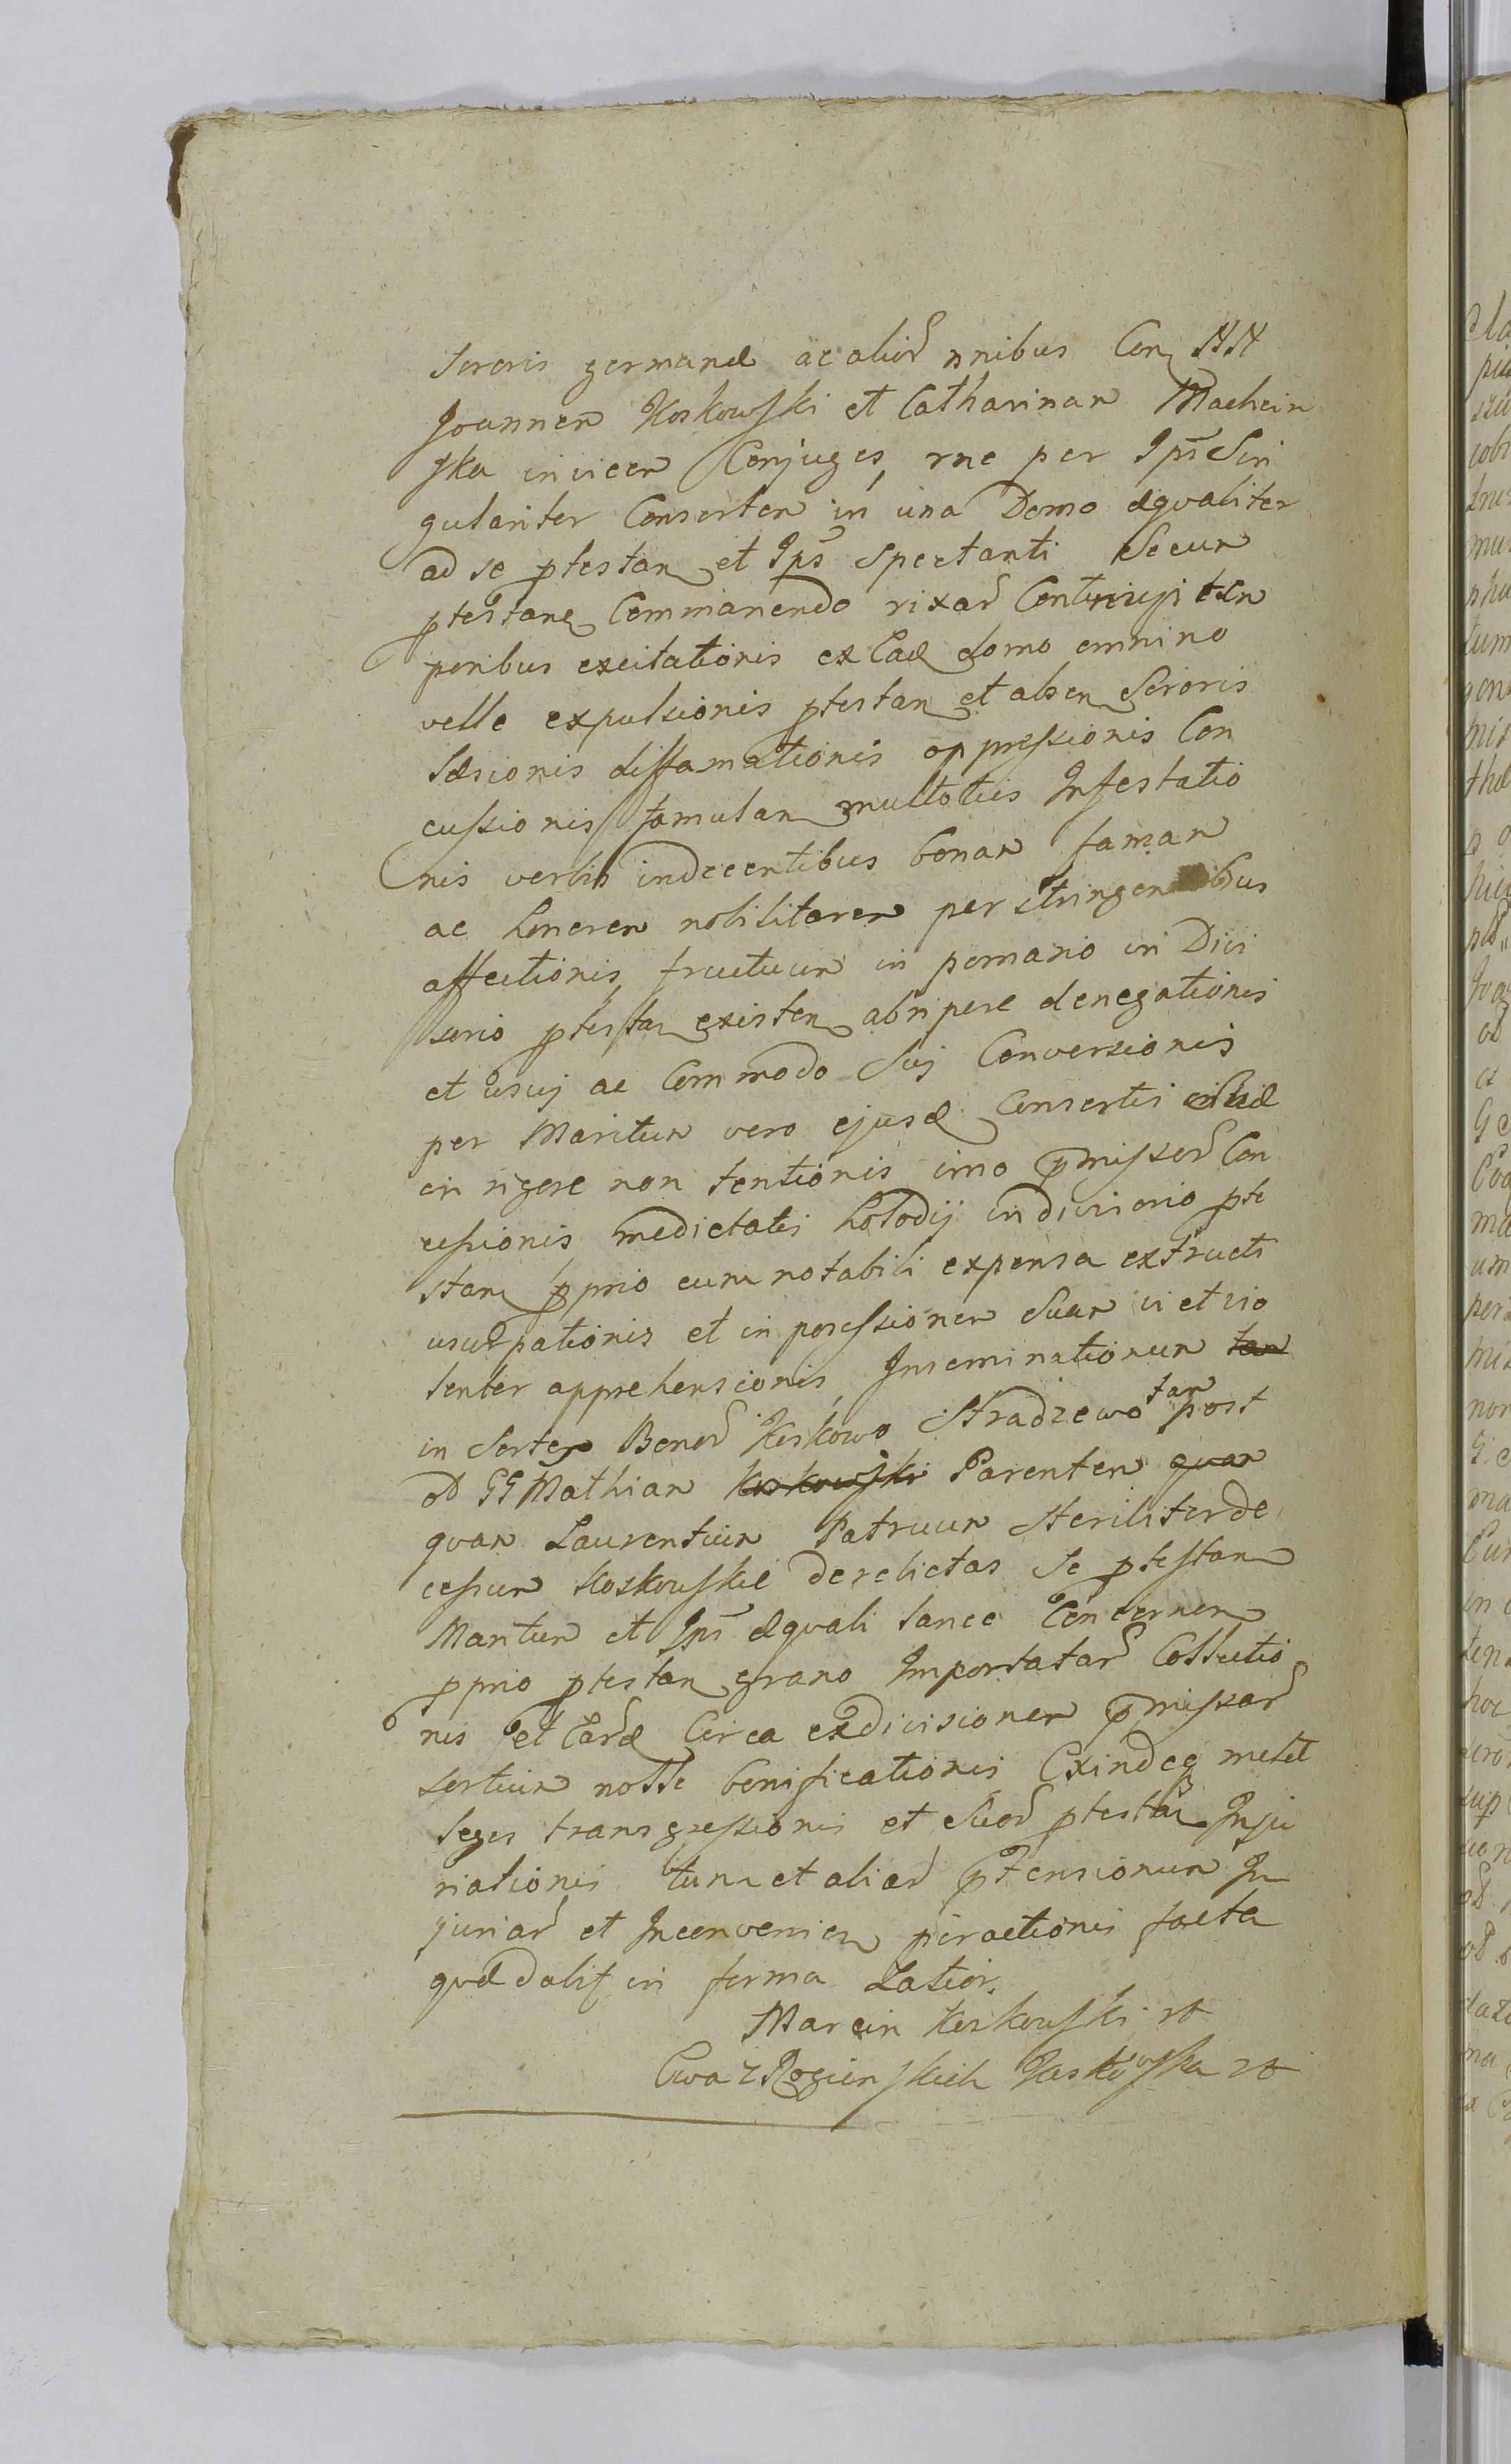 sororis germanæ ac aliorũ nnibus Con NN
Joannem Koskowski et Catharinam Machcin
ska invicem Conjuges, rne per Ips Sin
gulariter Consortem in una Domo æqvaliter
ad se ptestan et Ips spectanti Secum
ptestane Commanendo rixarũ Continuis tem
poribus excitationis ex Ead domo omnino
velle expulsionis ptestan et absen Sororis
læsionis diffamationis oppressionis Con
cussionis famulam multotius Infestatio
nis verbis indecentibus bonam famam
ac honorem nobilitarem perstringentibus
affectionis, fructuum in pomario in Divi
sorio ptesta existen abripere denegationis
et usuj ac Commodo Suj Conversionis
per Maritum vero ejusd Consortis
in rigore non tentionis imo pmissorũ Con
cessionis medietatis hołodij indivisorio pte
stan pprio cum notabili expensa extructi
usurpationis et in possessionem Suam vi et vio
lenter apprehensionis, Inseminationum tam
in Sortes Bonorũ Koskowo Stradzewo tam post
ol GG Mathiam Koskowski Parentem qvam
qvam Laurentium Patruum Steriliter de
cessum Koskowskie derelictas Se ptestan
Maritum et Ips æqvali lance Concernen
pprio ptestan grano Importatarũ Collectio
nis et Earũd Circa exdivisionem pmissarũ
sortium nolle bonificationis Exindeq metet
leges transgressionis et Suorũ ptestan Inju
riationis tum et aliarũ ptensionum In
juriarũ et Inconvenien peractionis facta
qvæ dabit in forma Latior.
Marcin Koskowski
Ewa z Rogienskich Koskowska